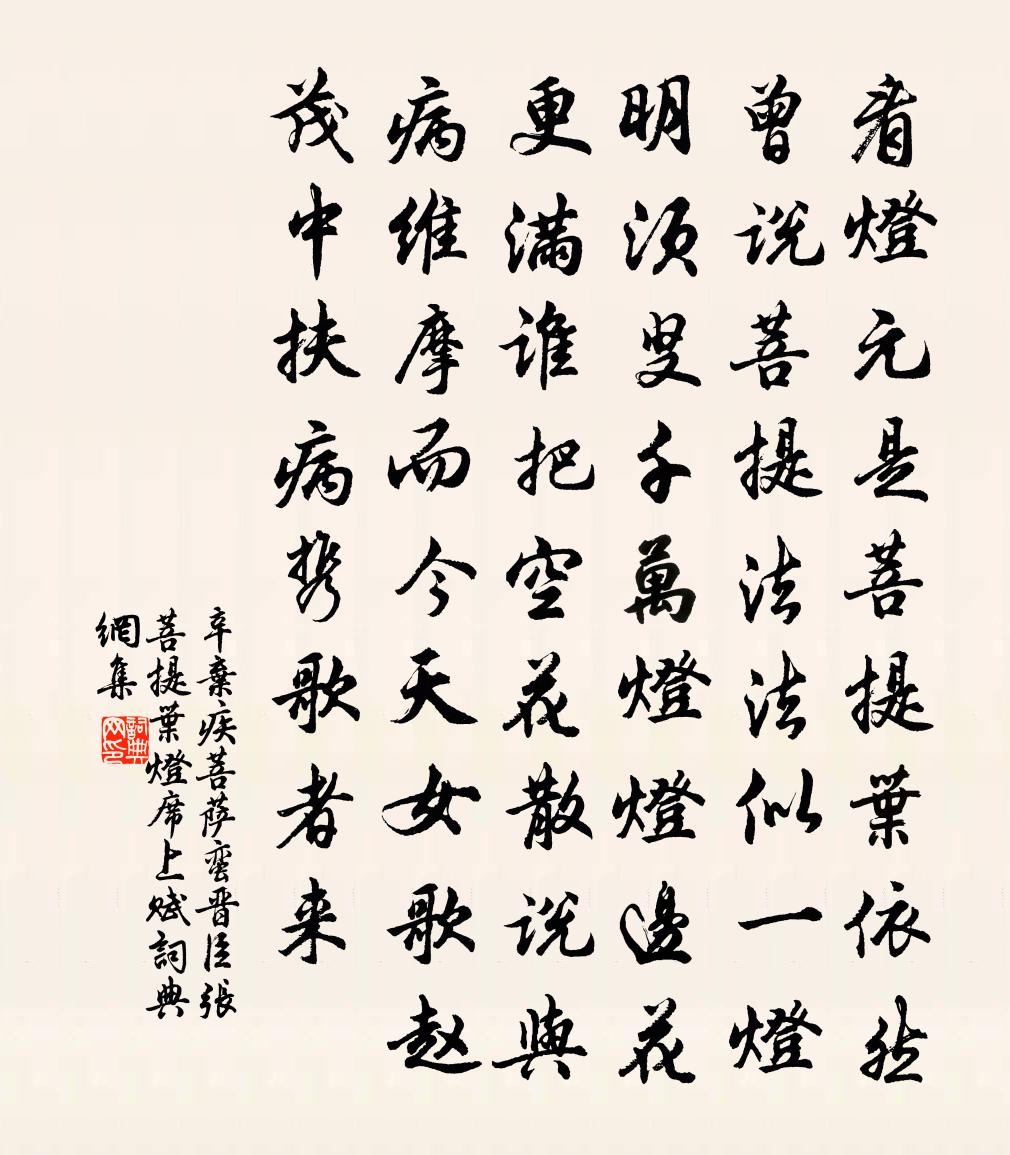 看燈元是菩提葉依然
曾说菩提法法似一燈
明須臾千萬燈燈邊花
更滿誰把空花散说與
病維摩而今天女歌赵
茂中扶病携歌者来
辛棄疾菩萨蛮晋臣張
菩提葉燈席上赋詞典
網集
詞典网印